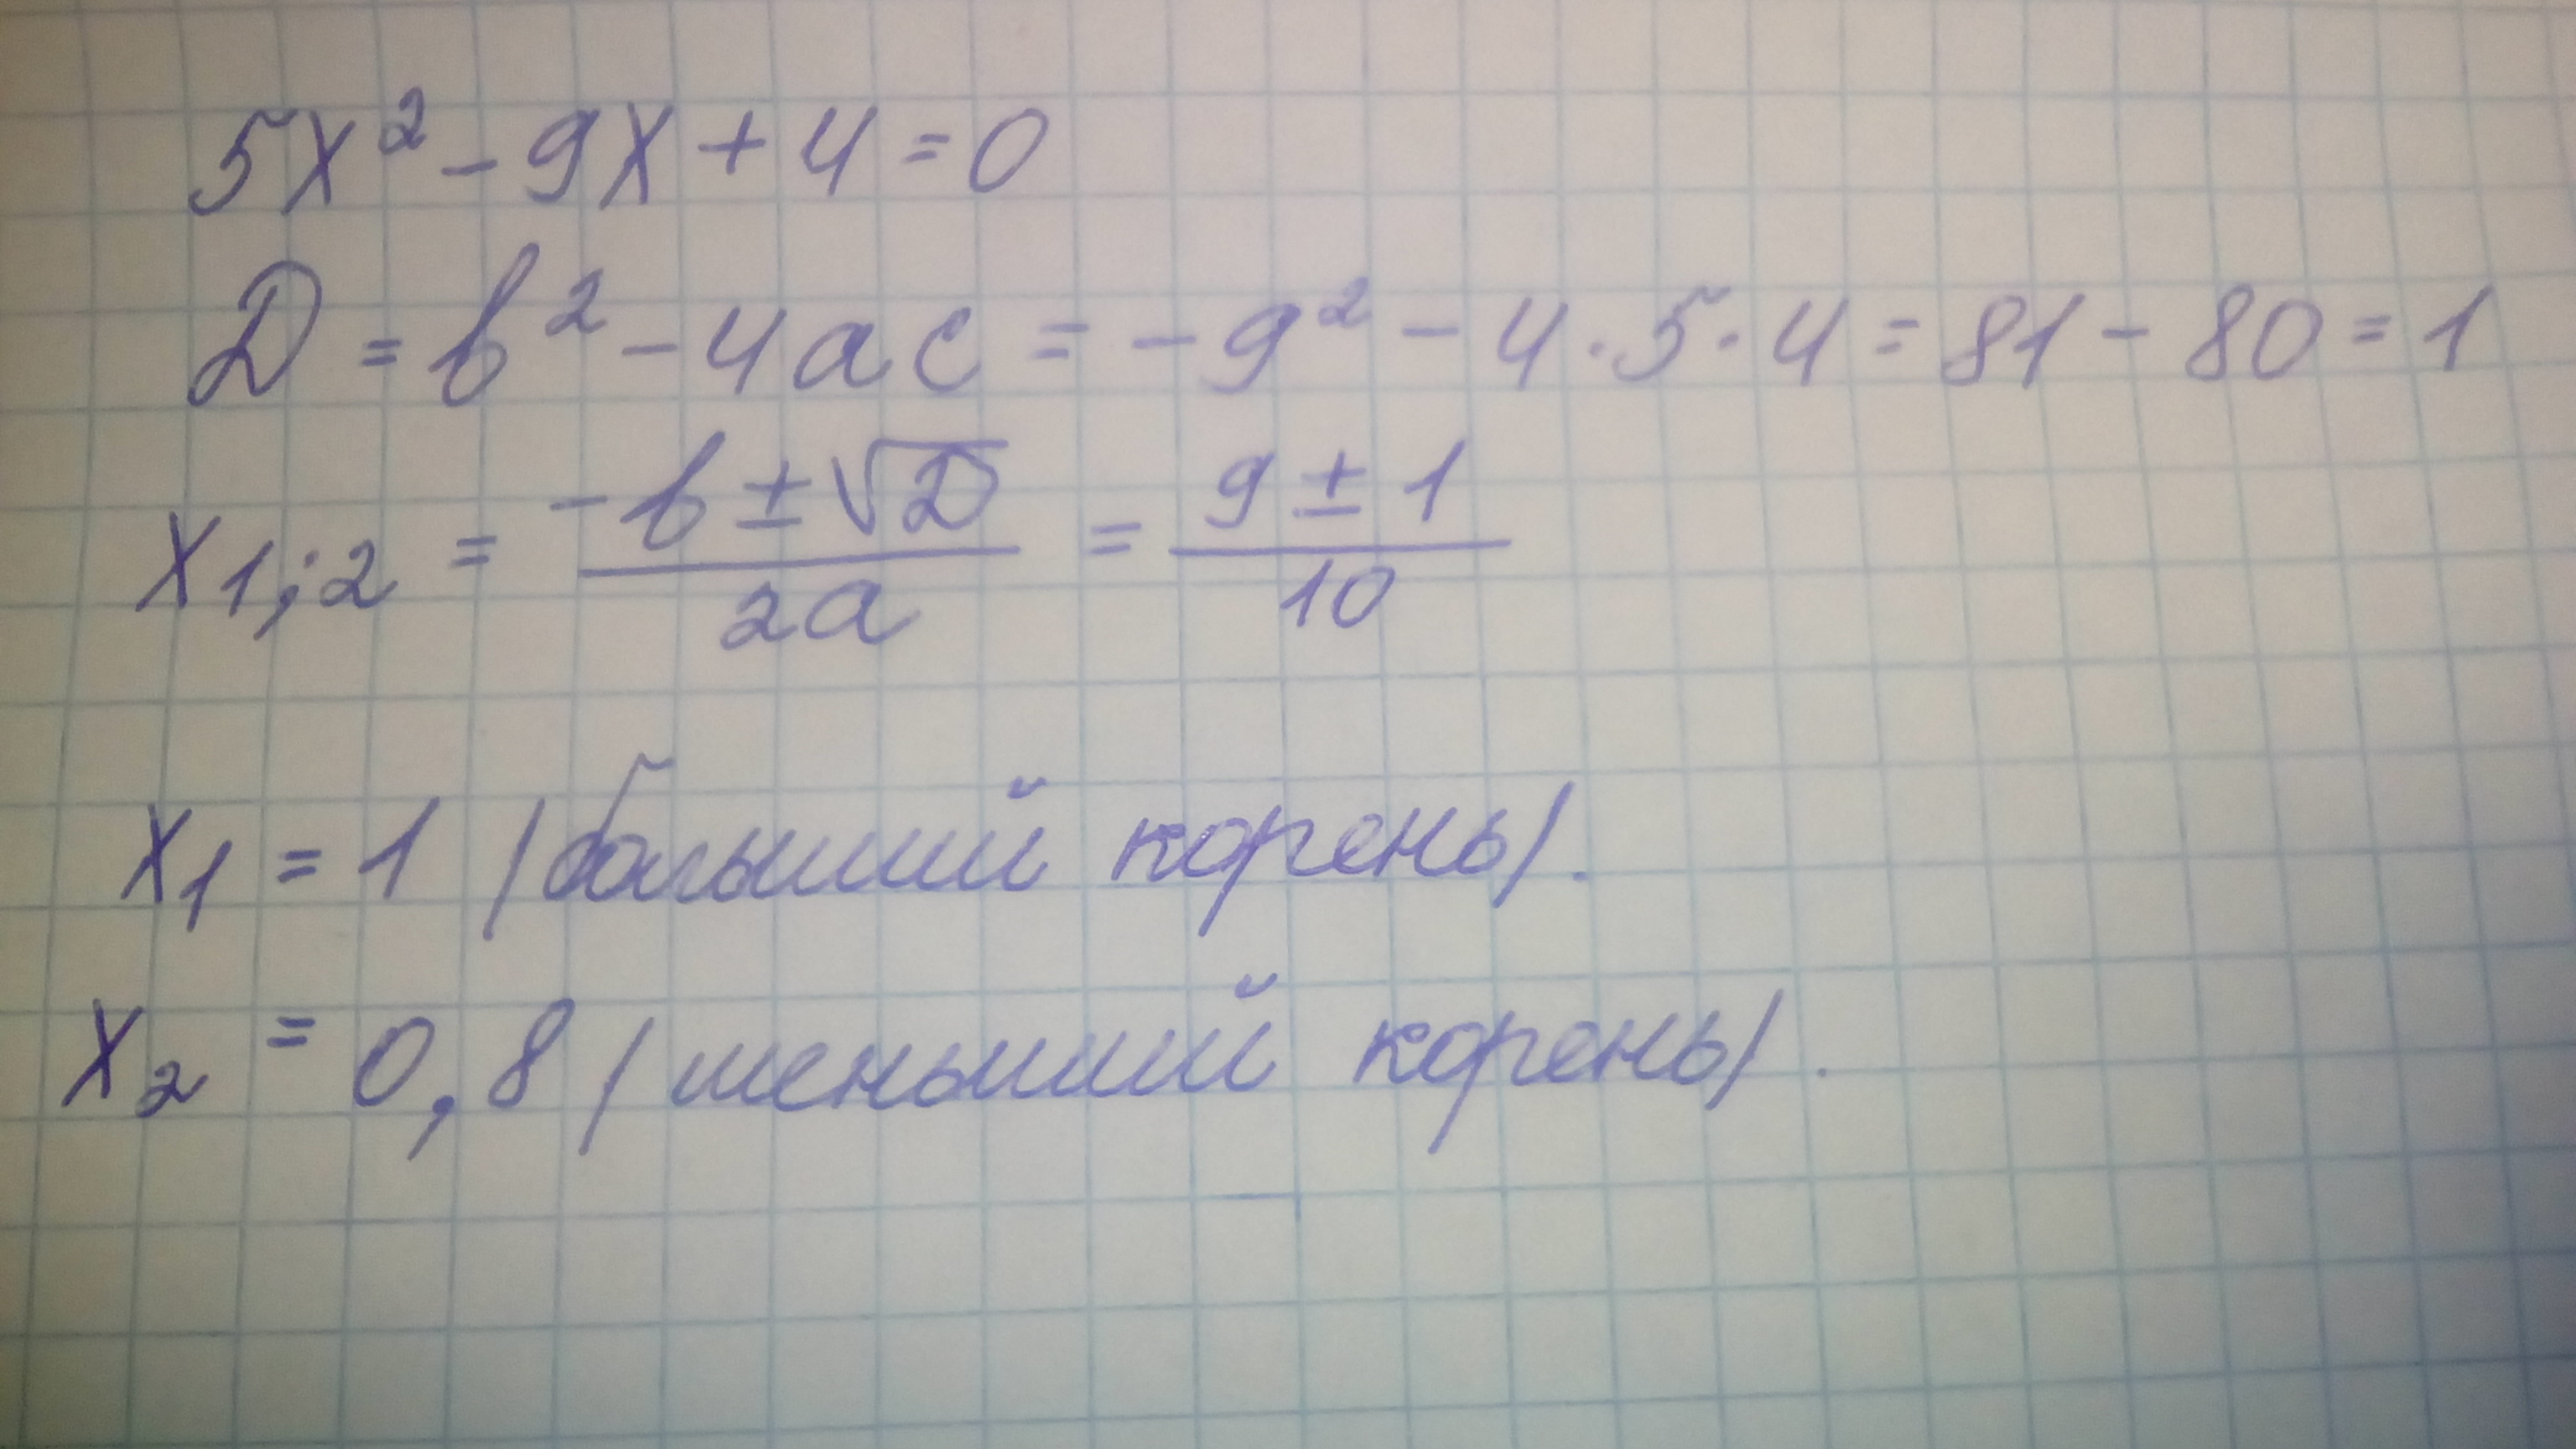 5x² - 9x + 4 = 0
D = b² - 4ac = -9² - 4·5·4 = 81 - 80 = 1
x₁;₂ = (-b ± √D)/(2a) = (9 ± 1)/10
x₁ = 1 /больший корень/.
x₂ = 0,8 /меньший корень/.